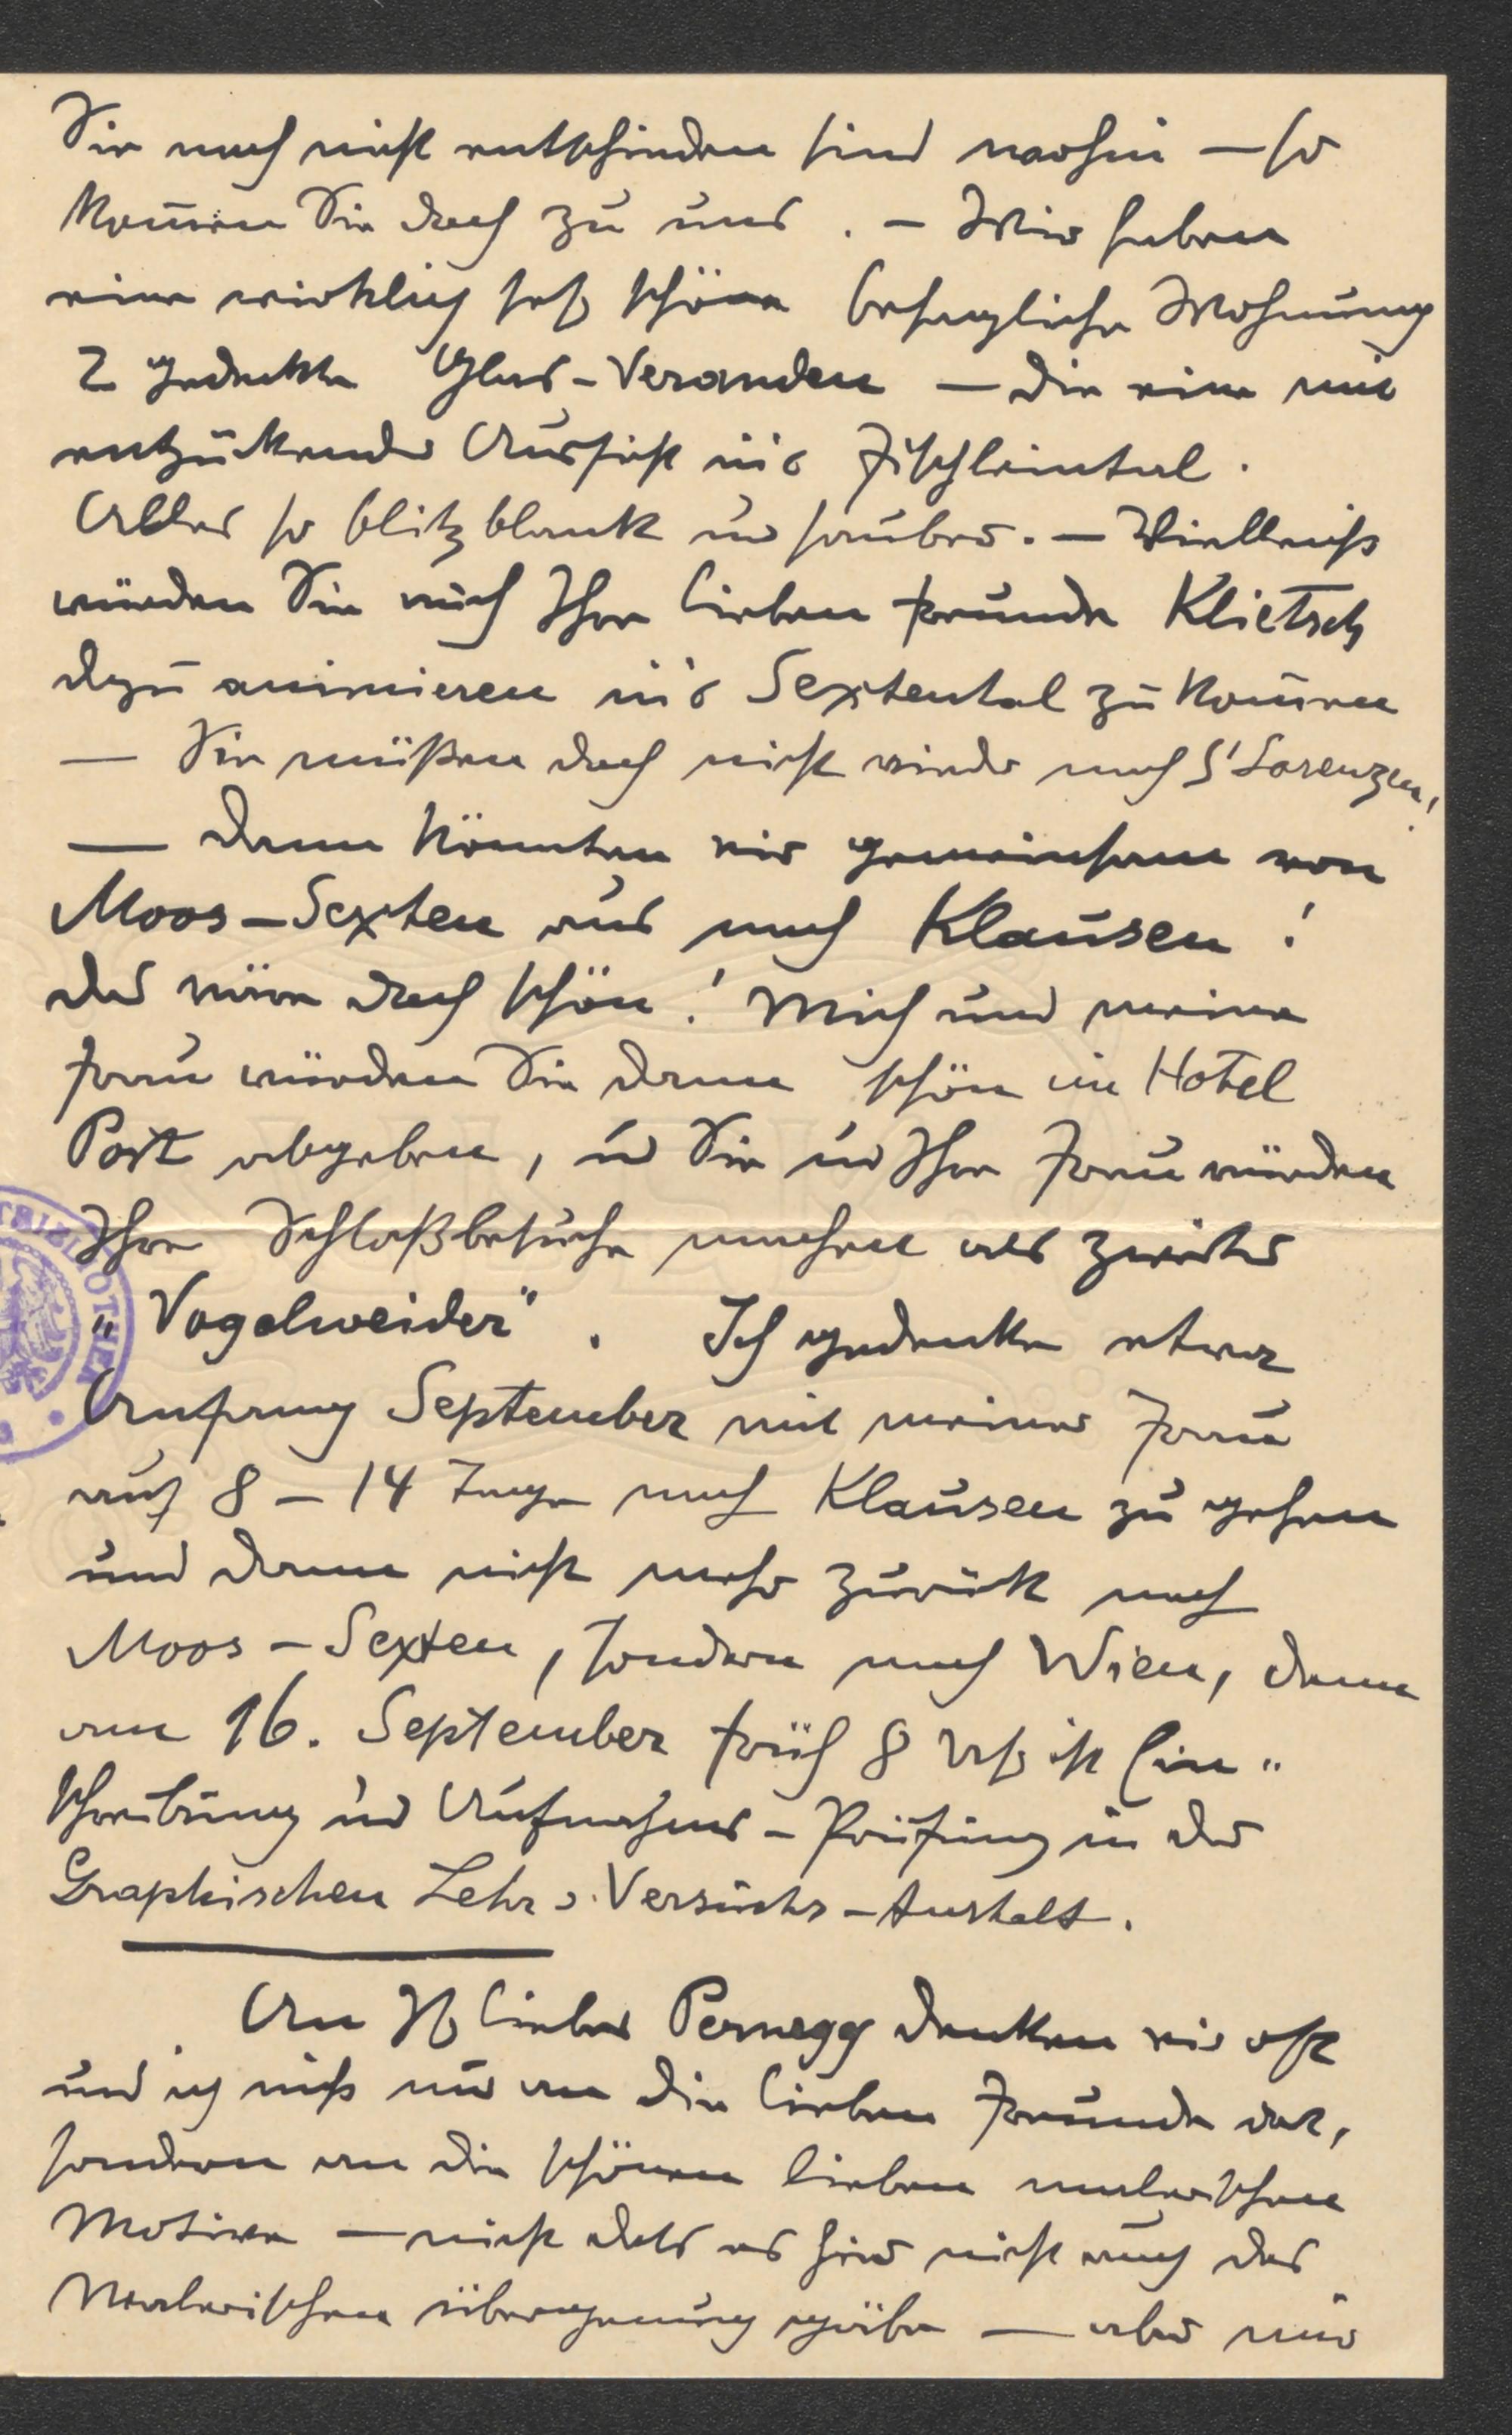 Sie noch nicht entschieden sind wohin — so
kom̄en Sie doch zu uns . — Wir haben
eine wirklich sehr schöne behagliche Wohnung
2 gedeckte Glas-Veranden — die eine mit
entzückender Aussicht in's Fischleintal .
Alles so blitzblank u sauber. — Vielleicht
würden Sie auch Ihre lieben Freunde Klietsch
dazu animieren in's Sextental zu kom̄en
— Sie müßen doch nicht wieder nach S' Lorenzen!
— Dann könnten wir gemeinsam von
Moos-Sexten aus nach Klausen !
das wäre doch schön! Mich und meine
Frau würden Sie dann schön im Hotel
Post abgeben, u Sie u Ihre Frau würden
Ihre Schloßbesuche machen als zweiter
„Vogelweider" . Ich gedenke etwa
Anfang September mit meiner Frau
auf 8 – 14 Tage nach Klausen zu gehen
und dann nicht mehr zurück nach
Moos – Sexten, sondern nach Wien, denn
am 16. September früh 8 Uhr ist Ein-
schreibung u Aufnahms-Prüfung in der
Graphischen Lehr u. Versuchs-Anstalt.
An Ihr liebes Pernegg denken wir oft
und ich nicht nur an die lieben Freunde dort,
sondern an die schönen lieben malerischen
Motive — nicht dass es hier nicht auch des
Malerischen übergenug gäbe — aber mir